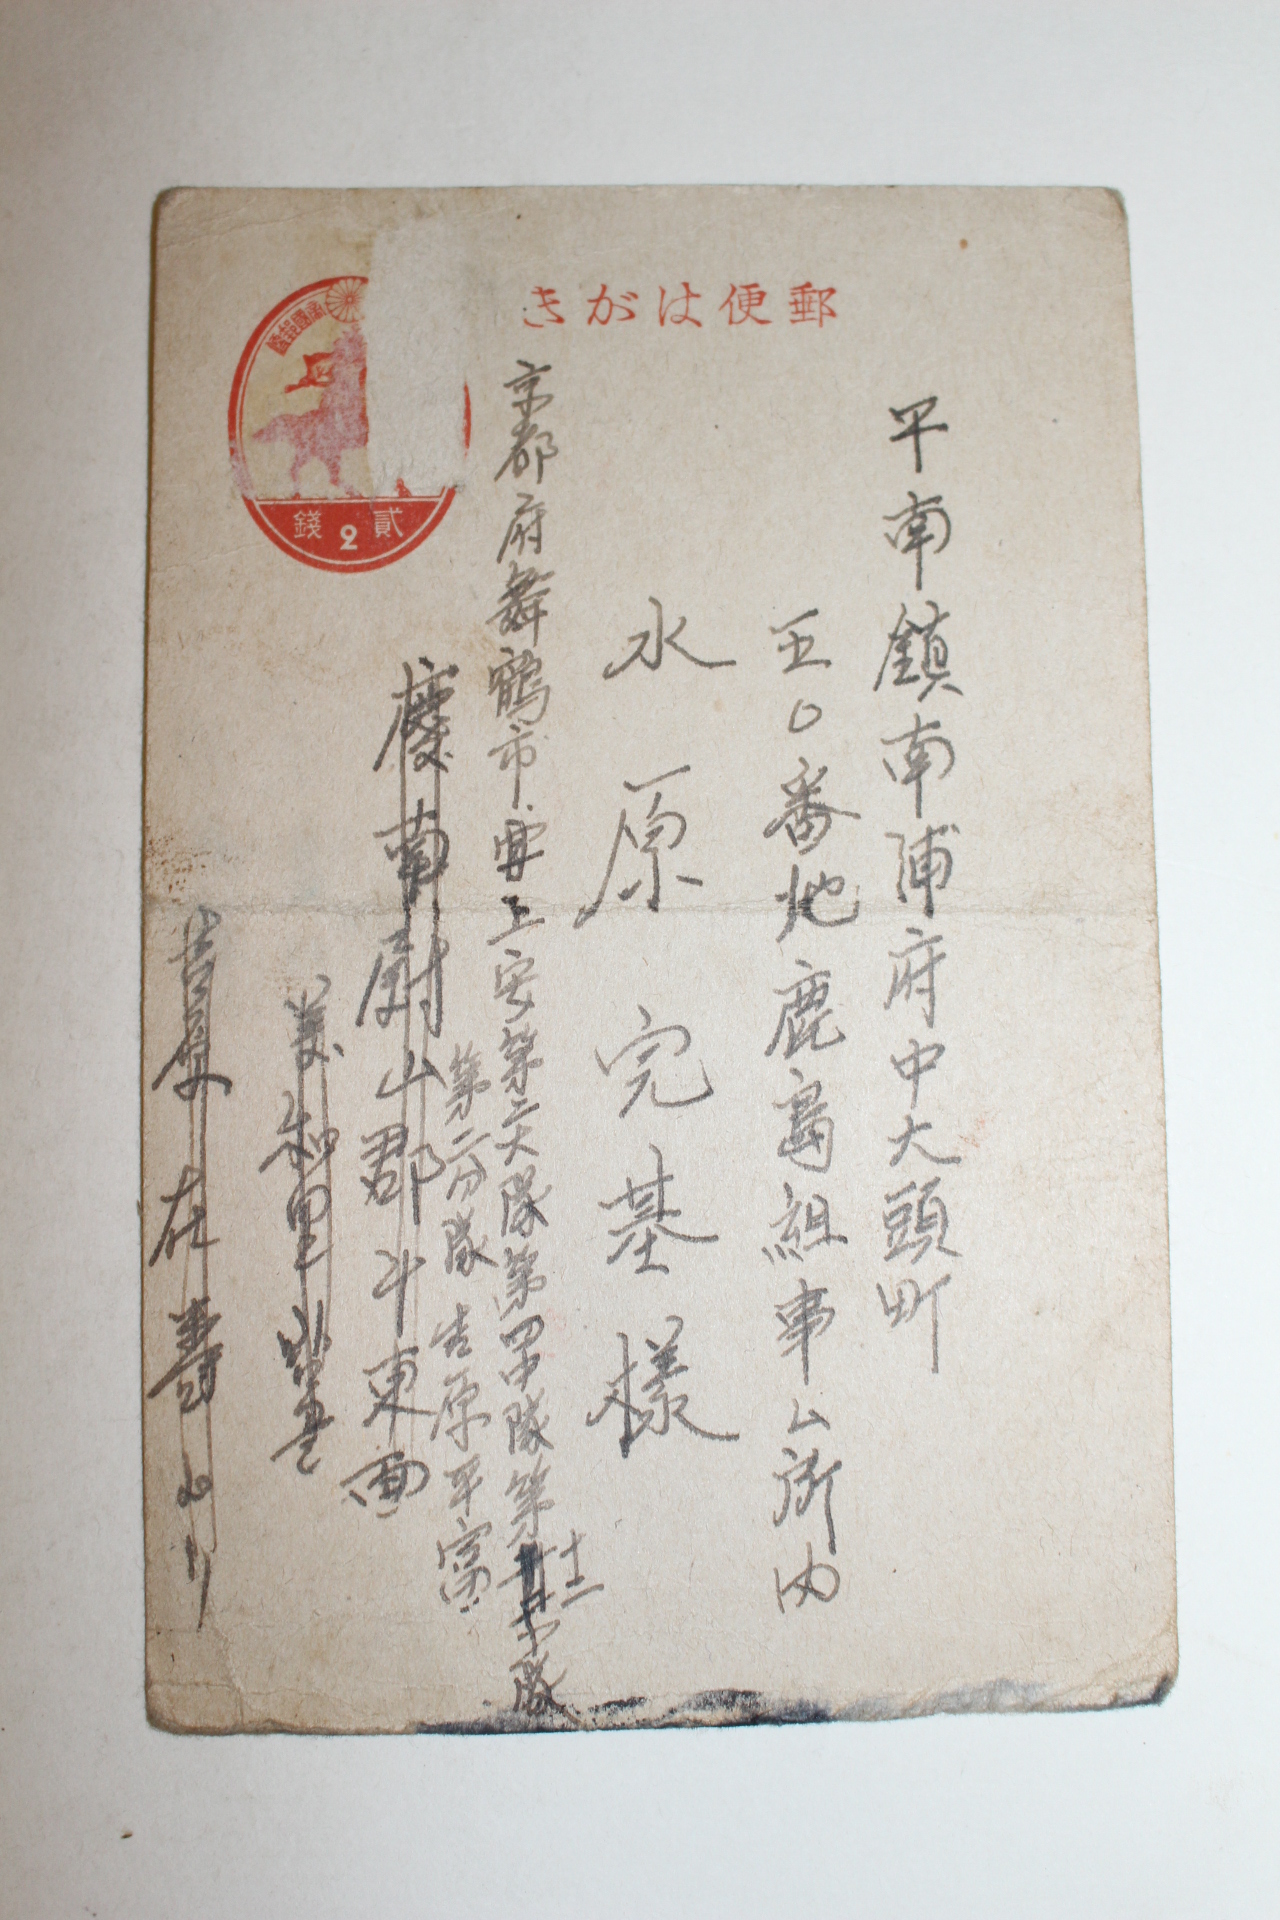 郵便はがき
大日本帝國郵便
貳2錢
平南鎮南浦府中大頭町
五〇番地鹿島組事ム所内
水原完基様
京都府舞鶴市字上安第二大隊第四中隊第十二小隊
第二分隊 吉原平富
慶南蔚山郡斗東面
美和里
在壽より